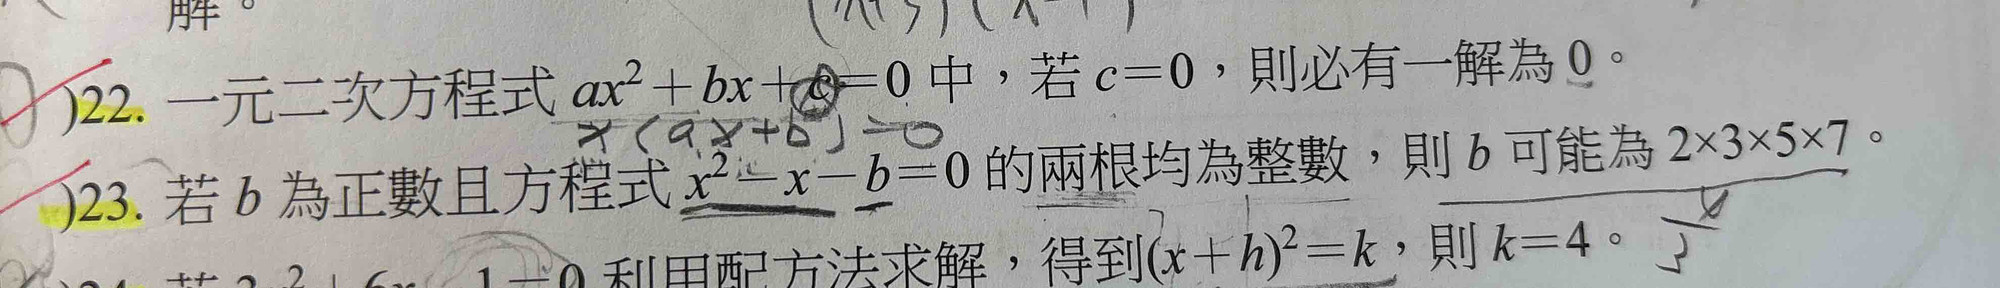 解。
)22. 一元二次方程式 ax²+bx+c=0 中，若 c=0，則必有一解為 0。
x(ax+b)=0
)23. 若 b 為正數且方程式 x²-x-b=0 的兩根均為整數，則 b 可能為 2×3×5×7。
利用配方法求解，得到(x+h)²=k，則 k=4。